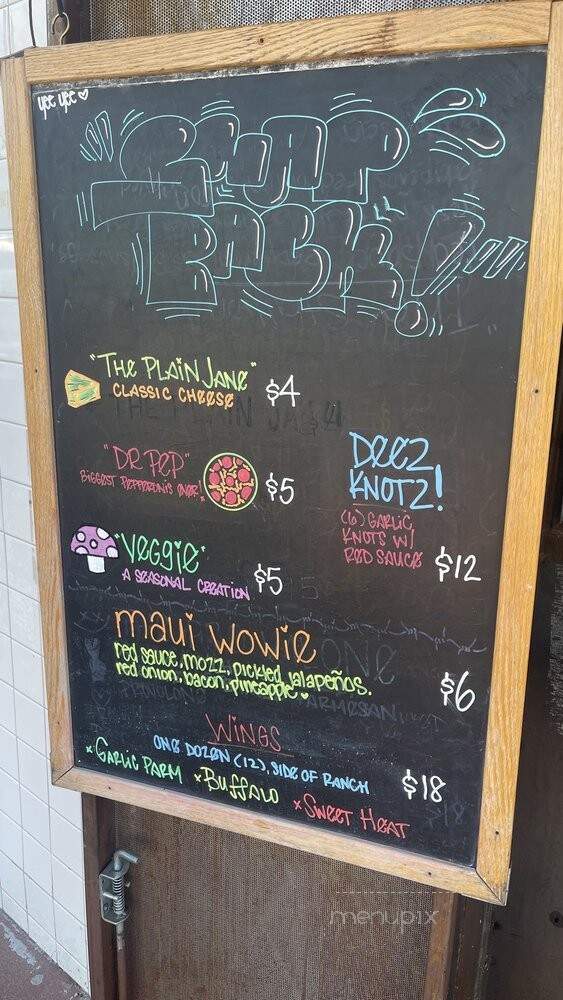 yee yee
SNAP
BACK!
"THE PLAIN JANE"
CLASSIC CHEESE
$4
"DR PEP"
BIGGEST PEPPERONIS EVER!
$5
DEEZ
KNOTZ!
(6) GARLIC
KNOTS W/
RED SAUCE
$12
"VEGGIE"
A SEASONAL CREATION
$5
maui wowie
red sauce, mozz, pickled jalapeños.
red onion, bacon, pineapple
$6
WINGS
ONE DOZEN (12), SIDE OF RANCH
$18
x GARLIC PARM x BUFFALO x SWEET HEAT
menupix